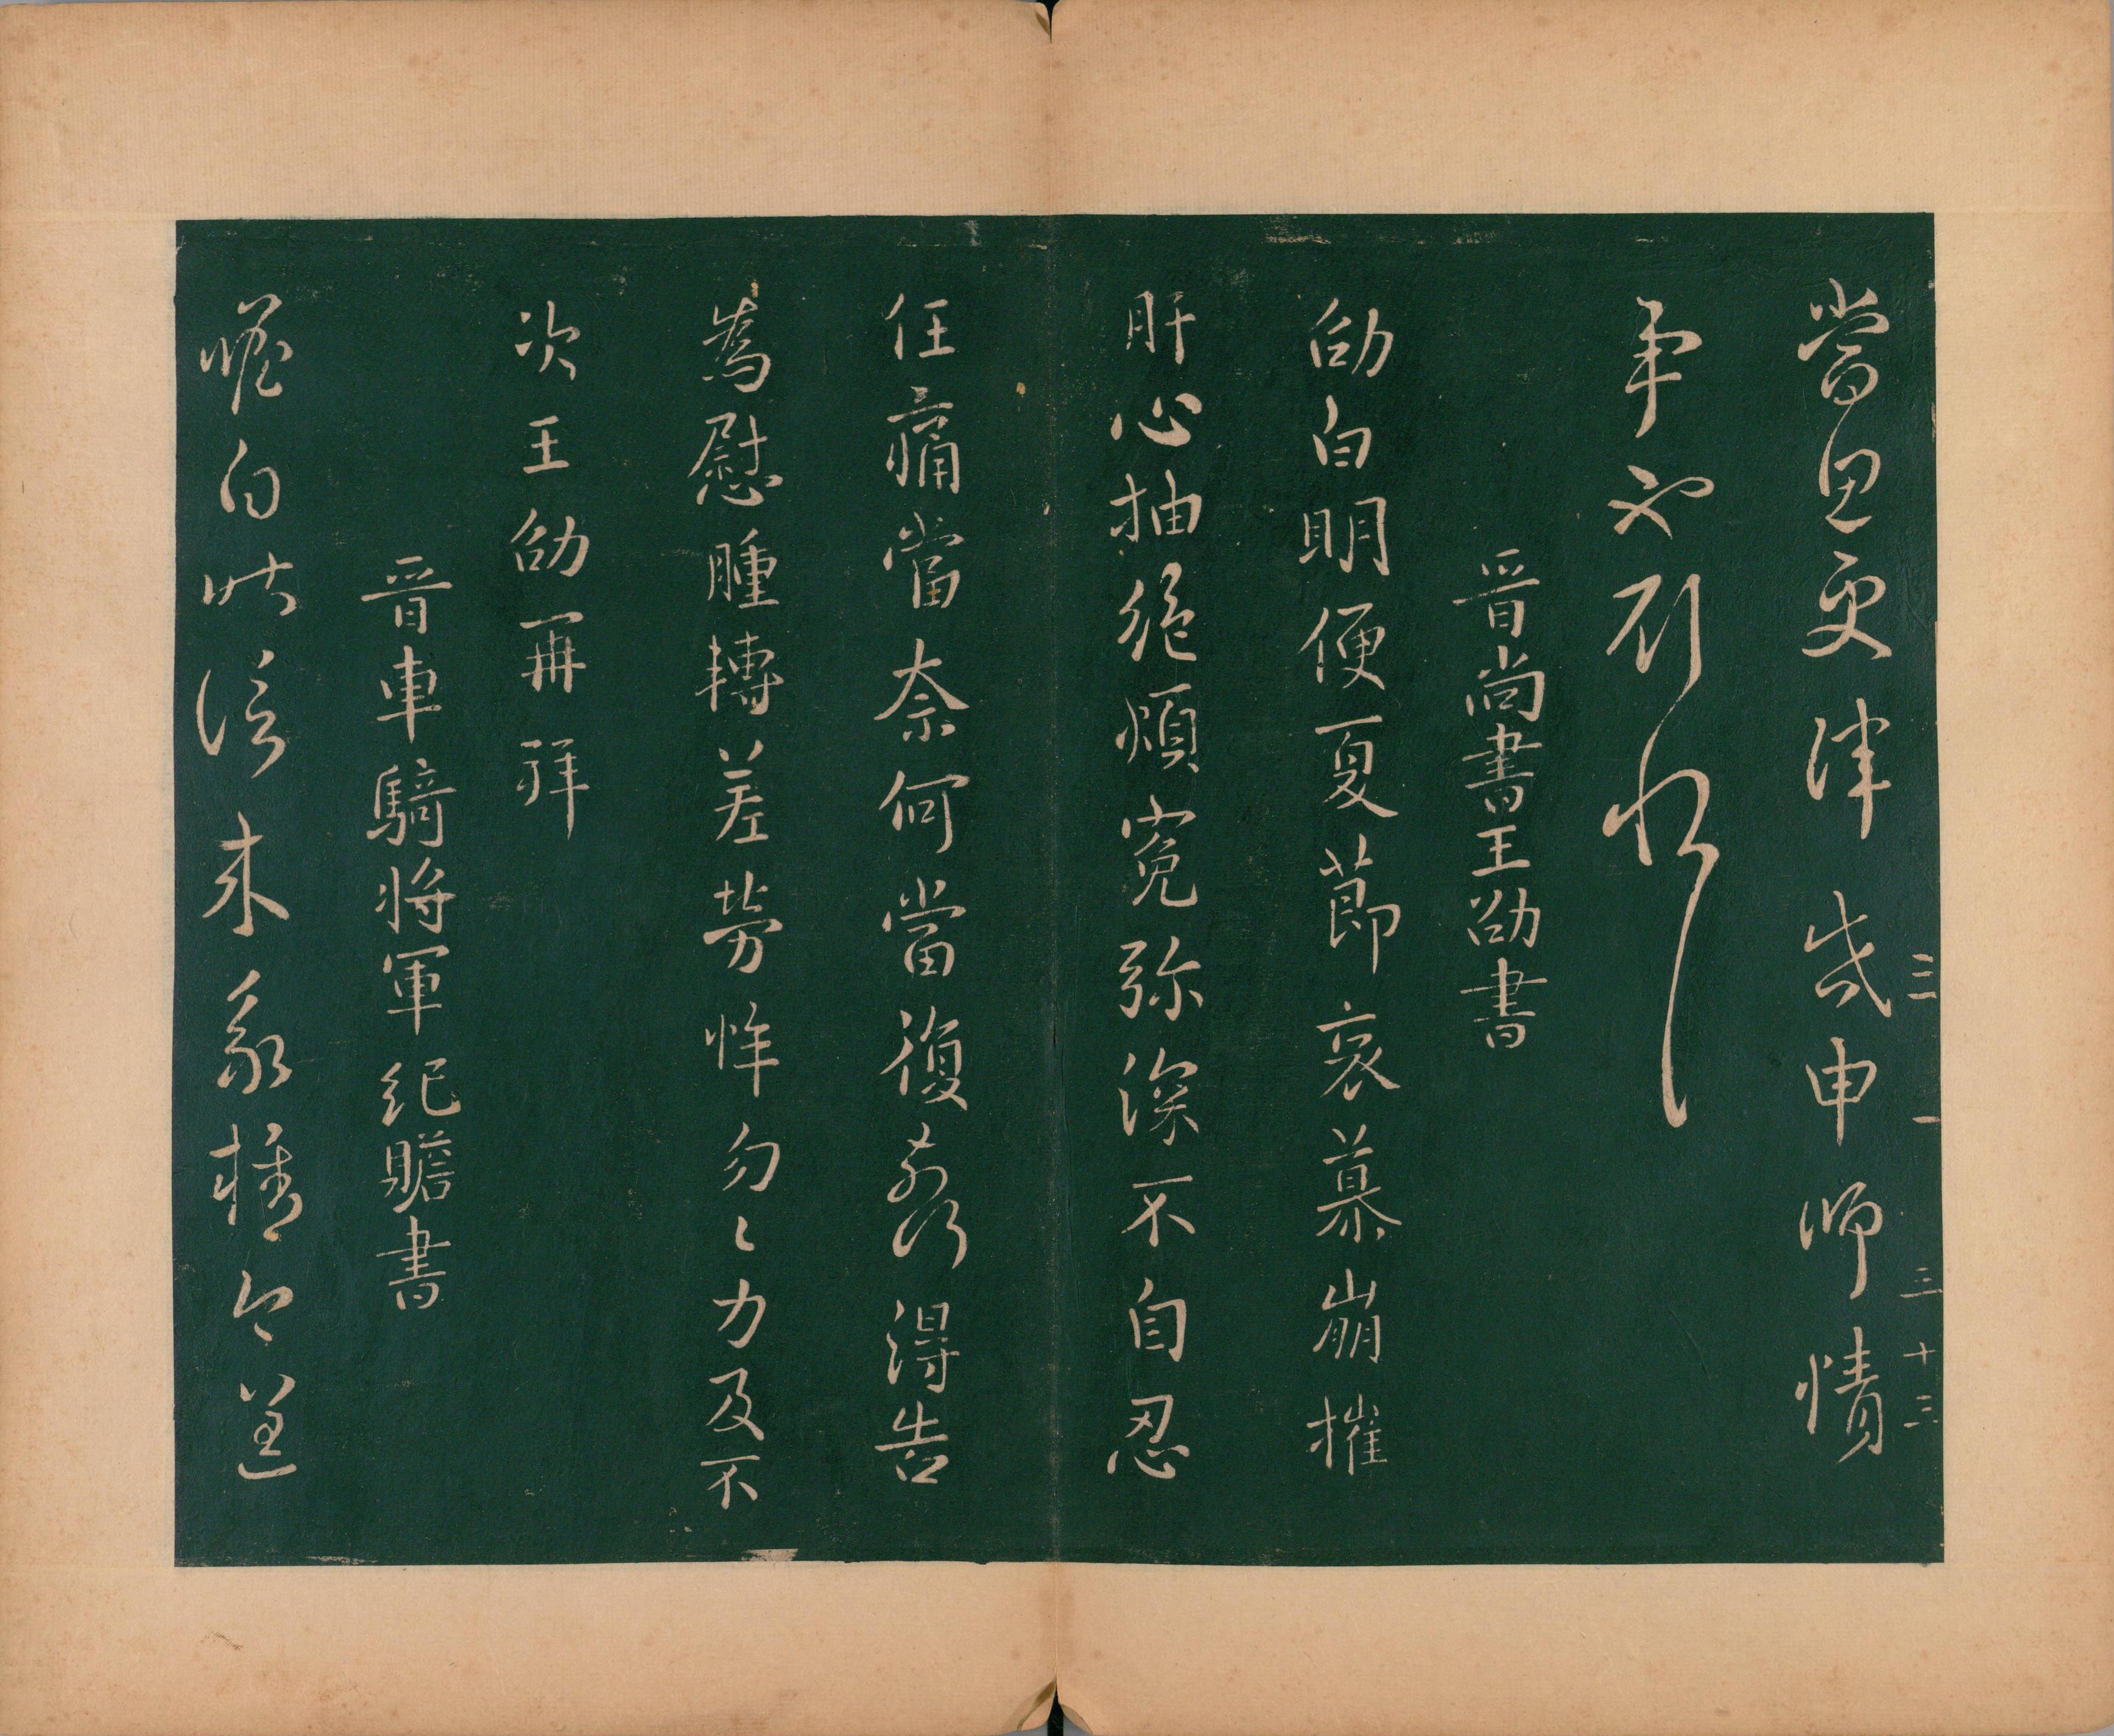 三 一 三 十三
當思更律 申師情
事
晉尚書王劭書
劭白明便夏節哀慕崩摧
肝心抽絕煩冤弥深不自忍
任痛當奈何當復 得告
為慰腫轉差勞悴勿〻力及不
次王劭再拜
晉車騎將軍紀瞻書
瞻白 信未 種今送